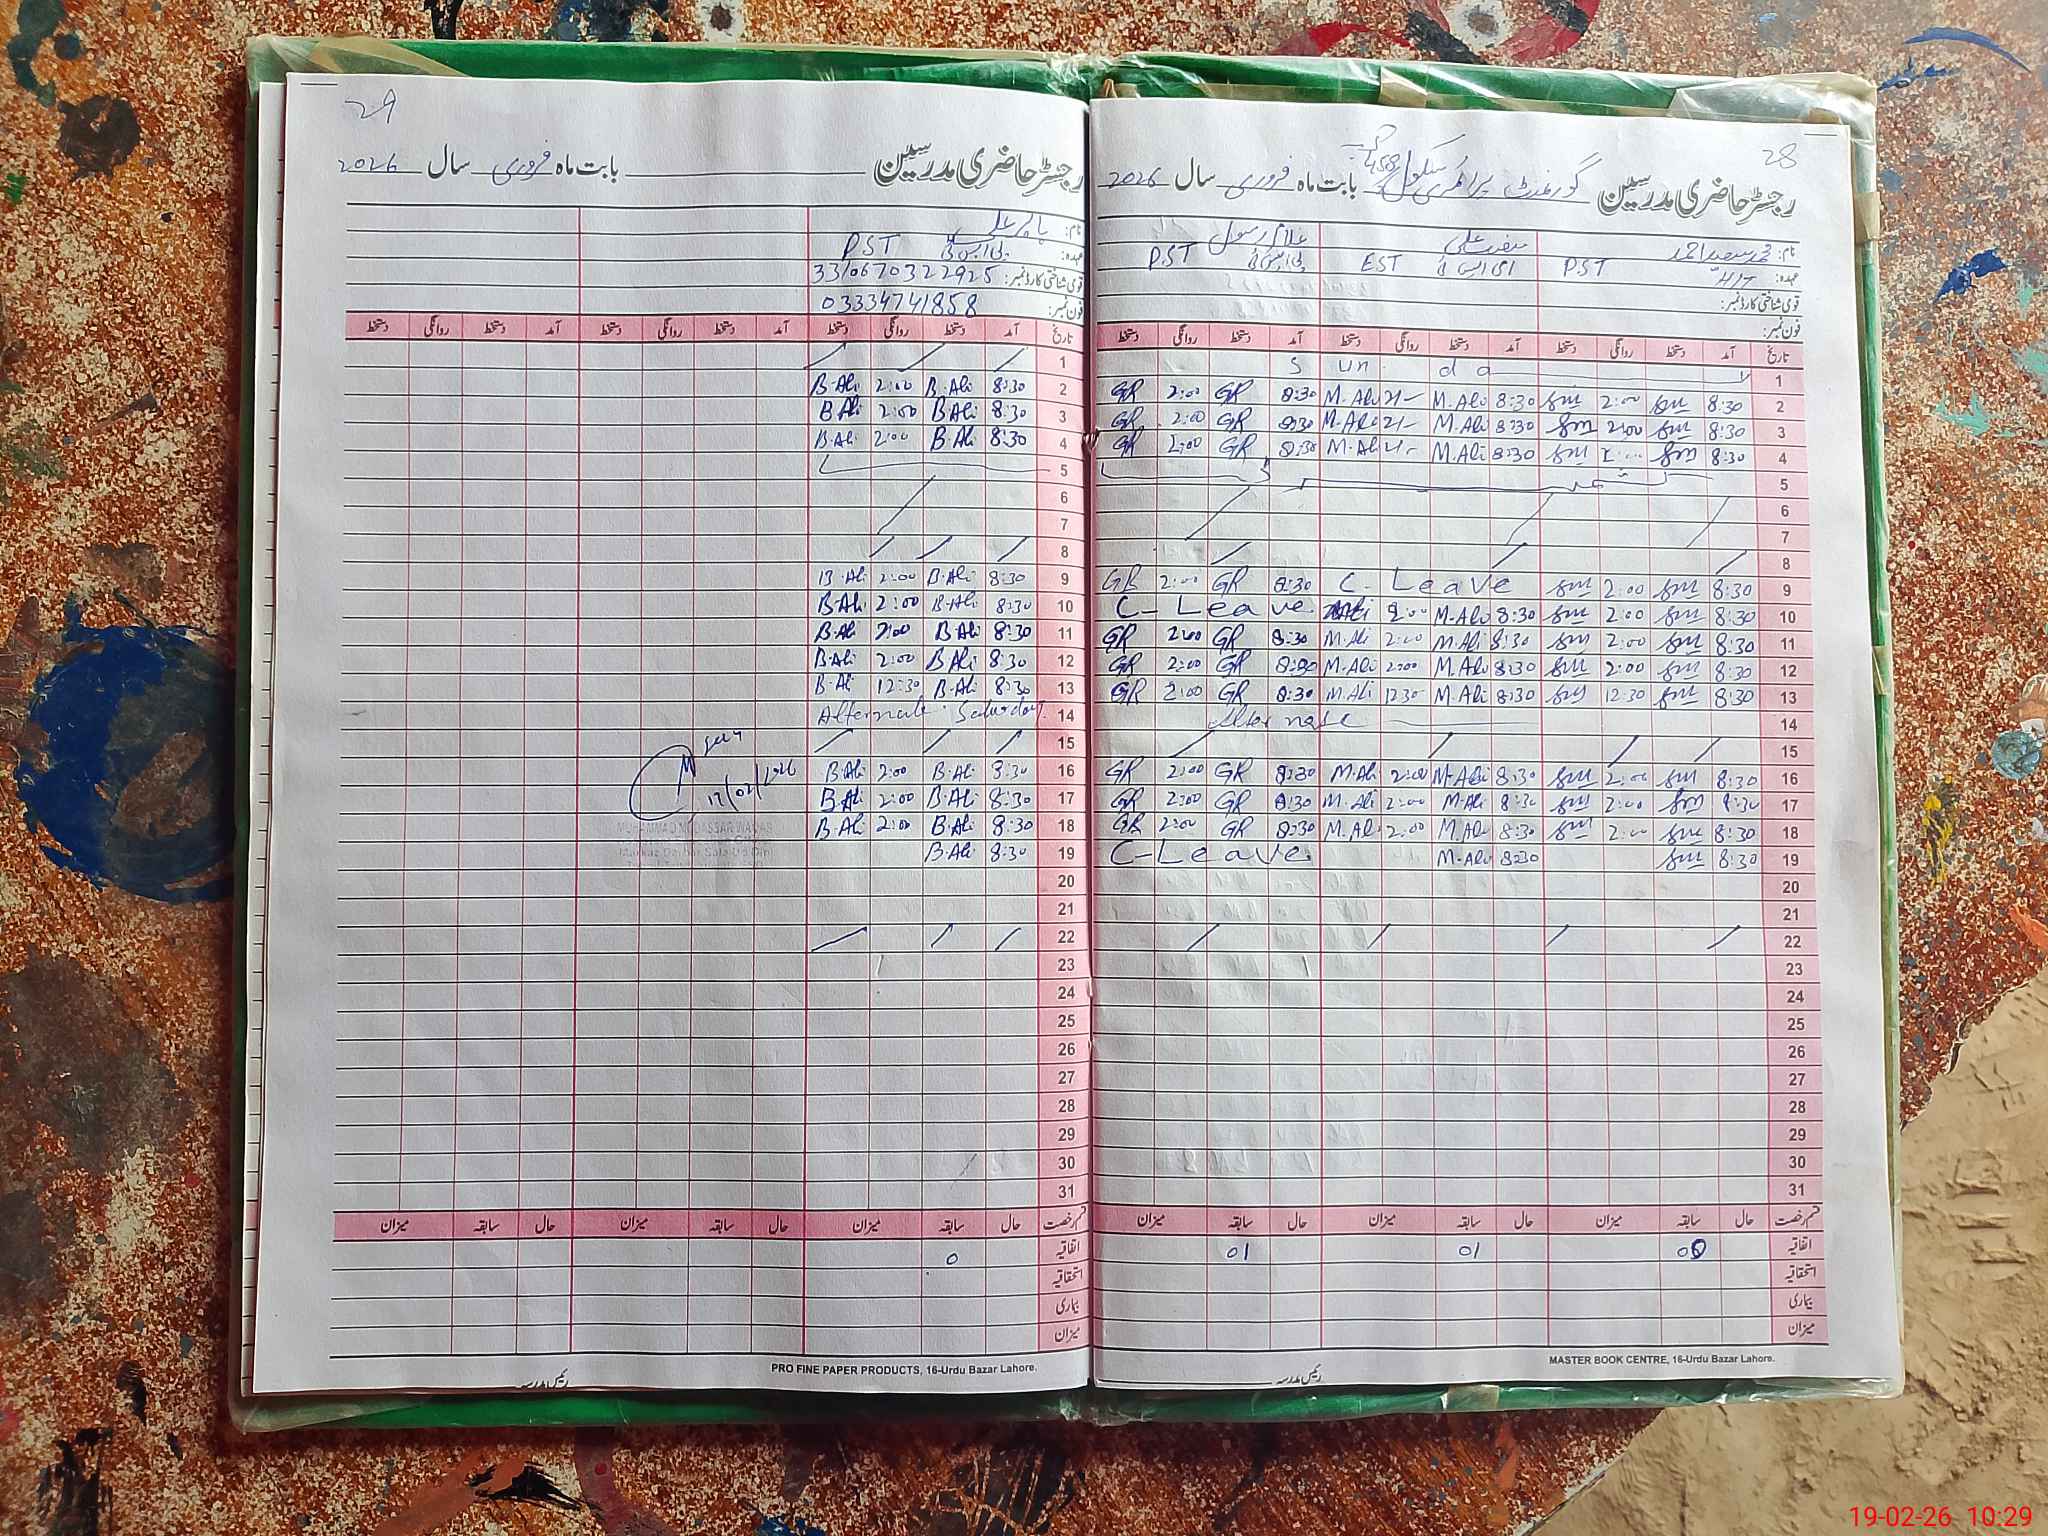 29
رجسٹر حاضری مدرسین بابت ماہ فروری سال 2026
نام:
عہدہ: PST
قومی شناختی کارڈ نمبر: 3310670322925
فون نمبر: 03334741858
تاریخ آمد دستخط روانگی دستخط آمد دستخط روانگی دستخط آمد دستخط روانگی دستخط
1
2 8:30 B.Ali 2:00 B.Ali
3 8:30 B.Ali 2:00 B.Ali
4 8:30 B.Ali 2:00 B.Ali
5
6
7
8
9 8:30 B.Ali 2:00 B.Ali
10 8:30 B.Ali 2:00 B.Ali
11 8:30 B.Ali 2:00 B.Ali
12 8:30 B.Ali 2:00 B.Ali
13 8:30 B.Ali 12:30 B.Ali
14 Alternate Saturday
15
16 8:30 B.Ali 2:00 B.Ali
17 8:30 B.Ali 2:00 B.Ali
18 8:30 B.Ali 2:00 B.Ali
19 8:30 B.Ali
20
21
22
23
24
25
26
27
28
29
30
31
قسم رخصت حال سابقہ میزان حال سابقہ میزان حال سابقہ میزان
اتفاقیہ 0
استحقاقیہ
بیماری
میزان
PRO FINE PAPER PRODUCTS, 16-Urdu Bazar Lahore.
رئیس مدرسہ
28
رجسٹر حاضری مدرسین گورنمنٹ پرائمری سکول 458 بابت ماہ فروری سال 2026
نام: محمد سعید احمد صفدر علی غلام رسول
عہدہ: PST EST PST
قومی شناختی کارڈ نمبر:
فون نمبر:
تاریخ آمد دستخط روانگی دستخط آمد دستخط روانگی دستخط آمد دستخط روانگی دستخط
1 S un da y
2 8:30 2:00 8:30 M.Ali M.Ali 8:30 GR 2:00 GR
3 8:30 2:00 8:30 M.Ali M.Ali 8:30 GR 2:00 GR
4 8:30 8:30 M.Ali M.Ali 8:30 GR 2:00 GR
5
6
7
8
9 8:30 2:00 C- Leave 8:30 GR 2:00 GR
10 8:30 2:00 8:30 M.Ali 2:00 M.Ali C- Leave
11 8:30 2:00 8:30 M.Ali 2:00 M.Ali 8:30 GR 2:00 GR
12 8:30 2:00 8:30 M.Ali 2:00 M.Ali 8:30 GR 2:00 GR
13 8:30 12:30 8:30 M.Ali 12:30 M.Ali 8:30 GR 2:00 GR
14 Alternate
15
16 8:30 2:00 8:30 M.Ali 2:00 M.Ali 8:30 GR 2:00 GR
17 8:30 2:00 8:30 M.Ali 2:00 M.Ali 8:30 GR 2:00 GR
18 8:30 2:00 8:30 M.Ali 2:00 M.Ali 8:30 GR 2:00 GR
19 8:30 8:30 M.Ali C-Leave
20
21
22
23
24
25
26
27
28
29
30
31
قسم رخصت حال سابقہ میزان حال سابقہ میزان حال سابقہ میزان
اتفاقیہ 00 01 01
استحقاقیہ
بیماری
میزان
MASTER BOOK CENTRE, 16-Urdu Bazar Lahore.
رئیس مدرسہ
19-02-26 10:29